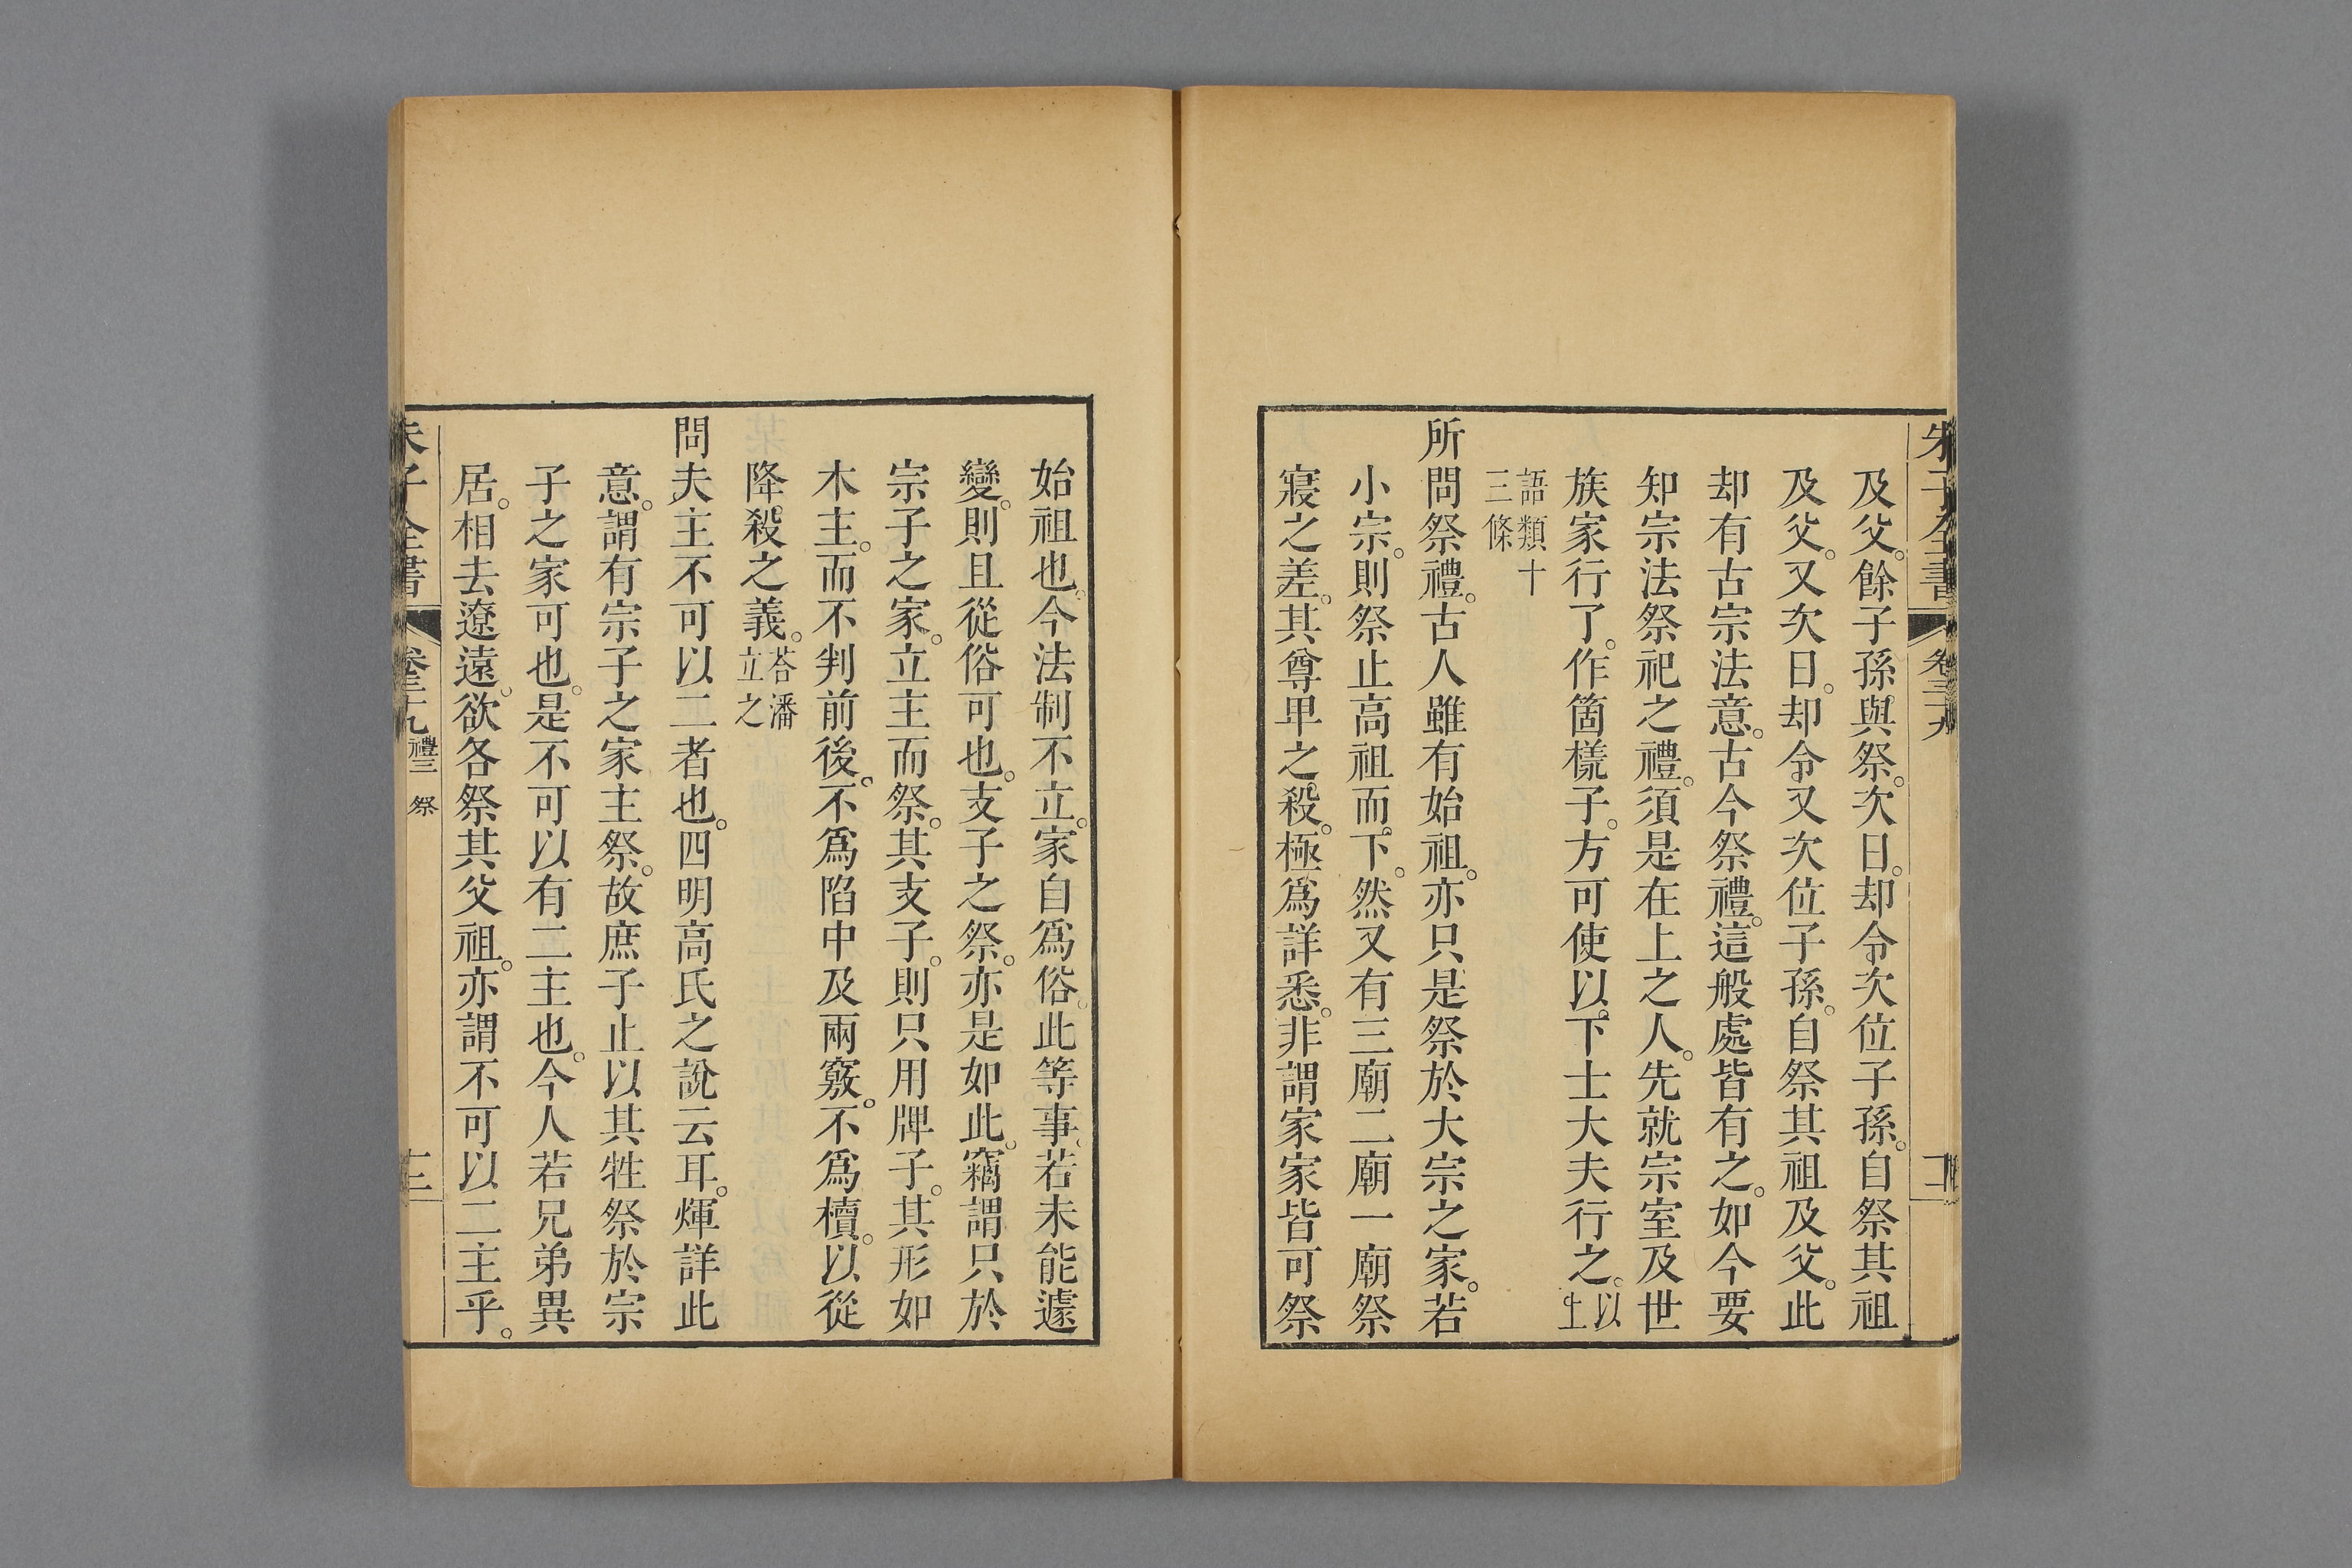 朱子全書 卷三十九
及父。餘子孫與祭。次日。却令次位子孫。自祭其祖
及父。又次日。却令又次位子孫。自祭其祖及父。此
却有古宗法意。古今祭禮。這般處皆有之。如今要
知宗法祭祀之禮。須是在上之人。先就宗室及世
族家行了。作箇樣子。方可使以下士大夫行之。以上
語類十三條
所問祭禮。古人雖有始祖。亦只是祭於大宗之家。若
小宗。則祭止高祖而下。然又有三廟二廟一廟祭
寢之差。其尊卑之殺。極爲詳悉。非謂家家皆可祭
始祖也。今法制不立。家自爲俗。此等事。若未能遽
變。則且從俗可也。支子之祭。亦是如此。竊謂只於
宗子之家。立主而祭。其支子。則只用牌子。其形如
木主。而不判前後。不爲陷中及兩竅。不爲櫝。以從
降殺之義。荅潘立之
問夫主不可以二者也。四明高氏之說云耳。煇詳此
意。謂有宗子之家主祭。故庶子止以其牲祭於宗
子之家可也。是不可以有二主也。今人若兄弟異
居。相去遼遠。欲各祭其父祖。亦謂不可以二主乎。
朱子全書 卷三十九 禮三 祭